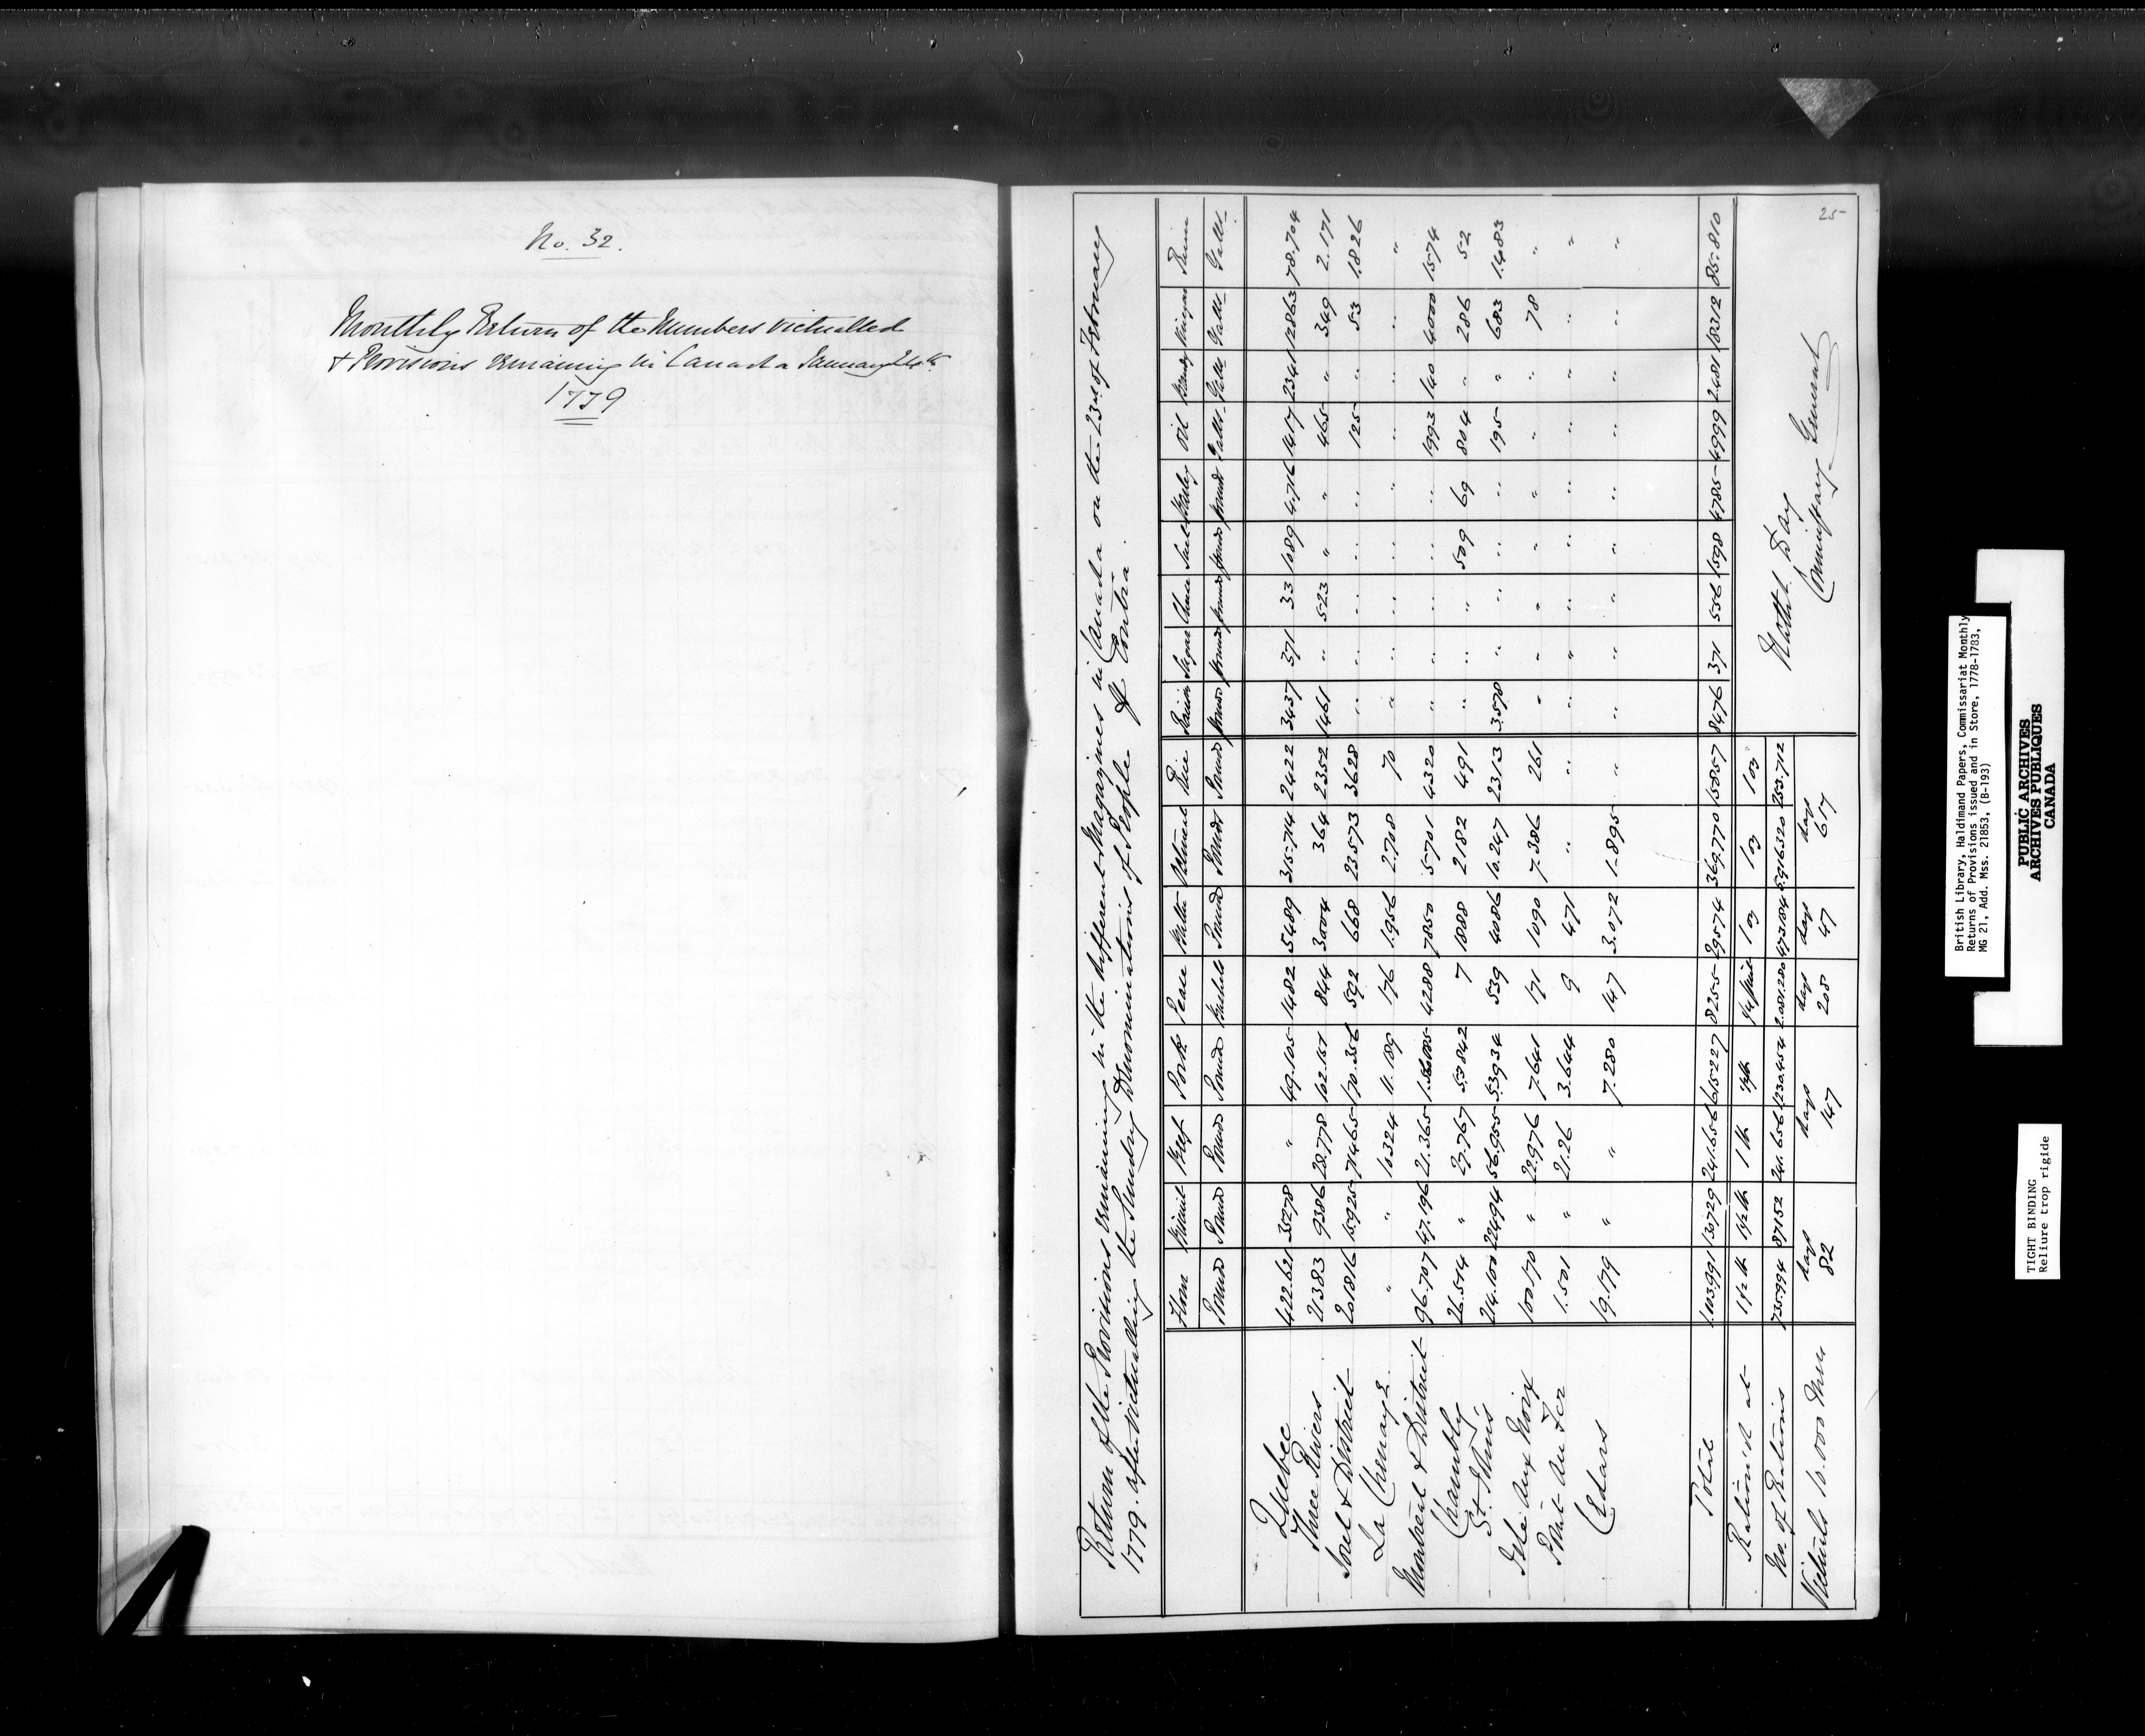 No. 32.
Monthly Return of the Numbers victualled
& Provisions remaining in Canada January 24th
1779
25
Return of the Provisions remaining in the different Magazines in Canada on the 23rd of February
1779. after victualling the Sundry Denominations of People pr Contra.
Flour Biscuit Beef Pork Pease Butter Oatmeal Rice Raisins Sugar Cheese Suet Barley Oil Brandy Vinegar Rum
Pounds Pounds Pounds Pounds Bushels Pounds Pounds Pounds Pounds Pounds Pounds Pounds Pounds Galls Galls Galls Galls
Quebec 422.621 35278 " 49.105 1482 5489 315.714 2422 3437 371 33 1089 4.716 1417 2341 12863 78.704
Three Rivers 21383 9386 28.778 102.151 844 3004 364 2352 1461 " 523 " " 465 " 349 2.171
Sorel & District 201816 15925 71465 170.356 592 668 23573 3628 " " " " " 125 " 53 1.826
La Chenay " " 10324 11.189 176 1.956 2.708 70 " " " " " " " " "
Montreal & District 96.707 47.196 21.365 4288 7850 5.701 4320 " " " " " 1993 140 4000 1574
Chambly 26.514 " 27.767 53842 7 1888 2182 491 " " " 509 69 804 " 286 52
St. Johns 214.100 22494 56.955 53934 539 4086 10.247 2313 3.578 " " " " 195 " 683 1.483
Isle Aux Noix 100.170 " 22.976 7.641 171 1090 7.386 261 " " " " " " " 78 "
Point Au Fer 1.501 " 21.26 3.644 9 471 " " " " " " " " " " "
Cedars 19.179 " " 7.280 147 3.072 1.895 " " " " " " " " " "
Total 1.103.991 130729 241.656 615227 8255 29574 369.770 15857 8476 371 556 1598 4785 4999 2481 18312 85.810
Rationed at 1 1/2 lb 1 1/2 lb 1 lb 1/2 lb 1/4 pint 1 oz 1 oz 1 oz
No. of Rations 735.994 87152 241.656 1230.454 2.081.280 473.184 5.916.320 253.712
Victuals 10.000 Men days 82 days 147 days 208 days 47 days 617
Nathl. Day
Commissary General
British Library, Haldimand Papers, Commissariat Monthly
Returns of Provisions issued and in Store, 1778-1783,
MG 21, Add. Mss. 21853, (B-193)
PUBLIC ARCHIVES
ARCHIVES PUBLIQUES
CANADA
TIGHT BINDING
Reliure trop rigide